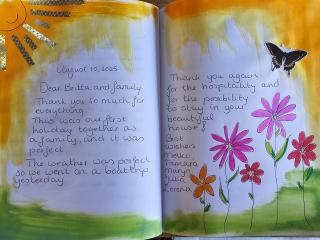 August 10, 2025
Dear Britta and family
Thank you so much for
everything.
This was our first
holiday together as
a family, and it was
perfect.
The weather was perfect
so we went on a boattrip
yesterday.
Thank you again
for the hospitality and
for the posibility
to stay in your
beautiful
house!
Best
wishes
Meiko,
Tamara
Marijn
Julia
Lorena